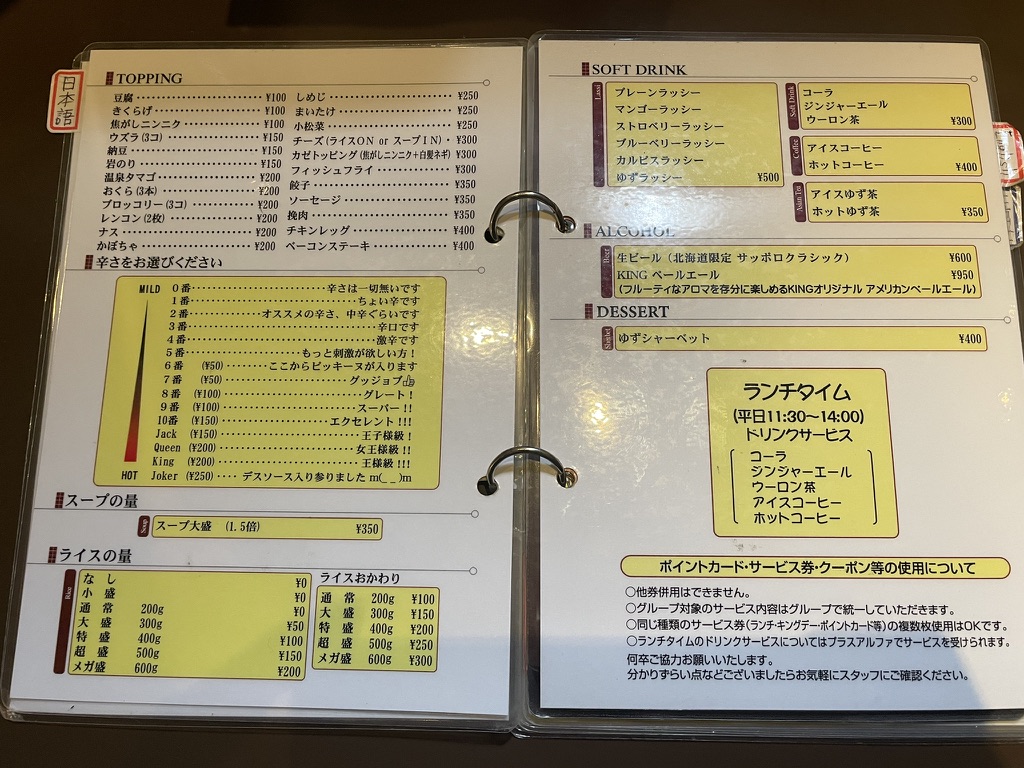 日本語
TOPPING
豆腐 ¥100
きくらげ ¥100
焦がしニンニク ¥100
ウズラ(3コ) ¥150
納豆 ¥150
岩のり ¥150
温泉タマゴ ¥200
おくら(3本) ¥200
ブロッコリー(3コ) ¥200
レンコン(2枚) ¥200
ナス ¥200
かぼちゃ ¥200
しめじ ¥250
まいたけ ¥250
小松菜 ¥250
チーズ(ライスON or スープIN) ¥300
カゼトッピング(焦がしニンニク+白髪ネギ) ¥300
フィッシュフライ ¥300
餃子 ¥350
ソーセージ ¥350
挽肉 ¥350
チキンレッグ ¥400
ベーコンステーキ ¥400
辛さをお選びください
MILD
0番 辛さは一切無いです
1番 ちょい辛です
2番 オススメの辛さ、中辛ぐらいです
3番 辛口です
4番 激辛です
5番 もっと刺激が欲しい方!
6番 (¥50) ここからピッキーヌが入ります
7番 (¥50) グッジョブ👍
8番 (¥100) グレート!
9番 (¥100) スーパー!!
10番 (¥150) エクセレント!!!
Jack (¥150) 王子様級!
Queen (¥200) 女王様級!!
King (¥200) 王様級!!!
HOT Joker (¥250) デスソース入り参りました m(_ _)m
スープの量
Soup
スープ大盛 (1.5倍) ¥350
ライスの量
Rice
なし ¥0
小盛 ¥0
通常 200g ¥0
大盛 300g ¥50
特盛 400g ¥100
超盛 500g ¥150
メガ盛 600g ¥200
ライスおかわり
通常 200g ¥100
大盛 300g ¥150
特盛 400g ¥200
超盛 500g ¥250
メガ盛 600g ¥300
SOFT DRINK
Lassi
プレーンラッシー
マンゴーラッシー
ストロベリーラッシー
ブルーベリーラッシー
カルピスラッシー
ゆずラッシー ¥500
Soft Drink
コーラ
ジンジャーエール
ウーロン茶 ¥300
Coffee
アイスコーヒー
ホットコーヒー ¥400
Asian Tea
アイスゆず茶
ホットゆず茶 ¥350
ALCOHOL
Beer
生ビール(北海道限定 サッポロクラシック) ¥600
KING ペールエール ¥950
(フルーティなアロマを存分に楽しめるKINGオリジナル アメリカンペールエール)
DESSERT
Sherbet
ゆずシャーベット ¥400
ランチタイム
(平日11:30~14:00)
ドリンクサービス
コーラ
ジンジャーエール
ウーロン茶
アイスコーヒー
ホットコーヒー
ポイントカード・サービス券・クーポン等の使用について
○他券併用はできません。
○グループ対象のサービス内容はグループで統一していただきます。
○同じ種類のサービス券(ランチ・キングデー・ポイントカード等)の複数枚使用はOKです。
○ランチタイムのドリンクサービスについてはプラスアルファでサービスを受けられます。
何卒ご協力お願いいたします。
分かりずらい点などございましたらお気軽にスタッフにご確認ください。